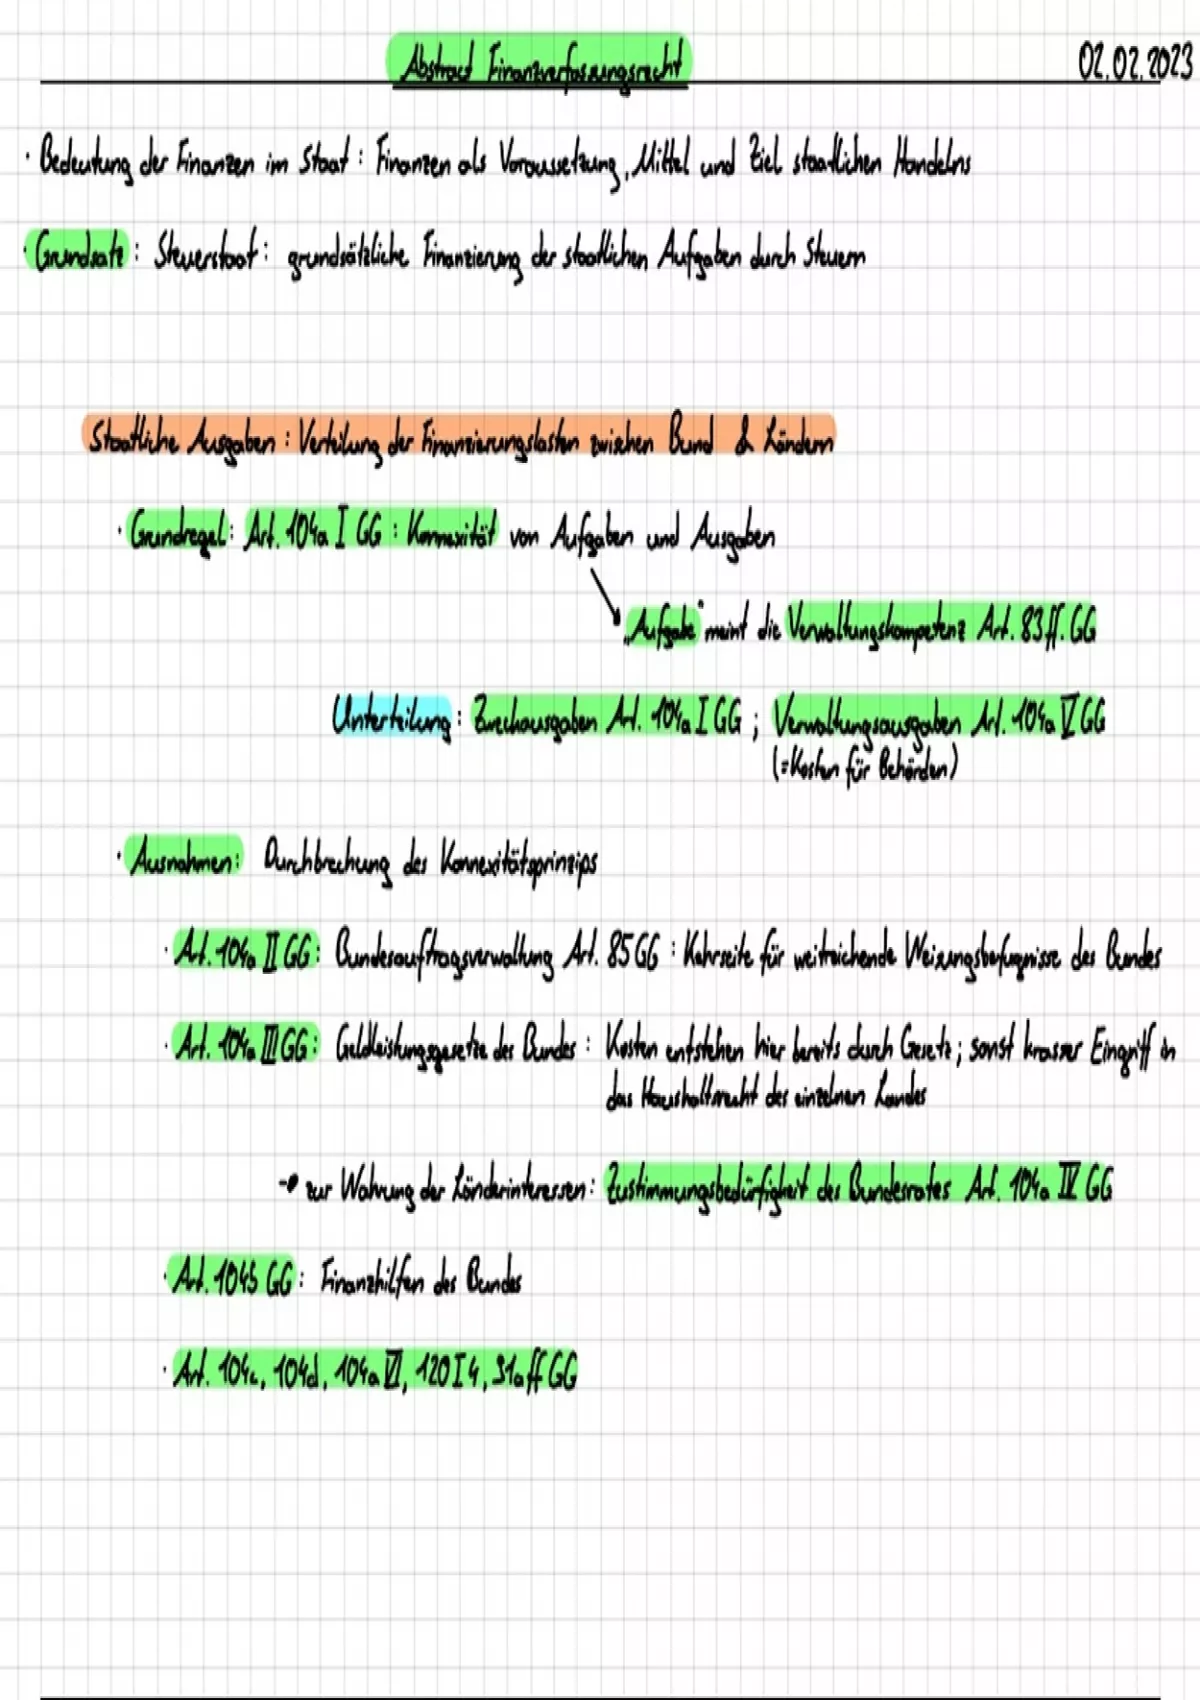 Abstract Finanzverfassungsrecht 02.02.2023
· Bedeutung der Finanzen im Staat: Finanzen als Voraussetzung, Mittel und Ziel staatlichen Handelns
· Grundsatz: Steuerstaat: grundsätzliche Finanzierung der staatlichen Aufgaben durch Steuern
Staatliche Ausgaben: Verteilung der Finanzierungslasten zwischen Bund & Ländern
· Grundregel: Art. 104a I GG: Konnexität von Aufgaben und Ausgaben
„Aufgabe" meint die Verwaltungskompetenz Art. 83 ff. GG
Unterteilung: Zweckausgaben Art. 104a I GG; Verwaltungsausgaben Art. 104a V GG
(=Kosten für Behörden)
· Ausnahmen: Durchbrechung des Konnexitätsprinzips
· Art. 104a II GG: Bundesauftragsverwaltung Art. 85 GG: Kehrseite für weitreichende Weisungsbefugnisse des Bundes
· Art. 104a III GG: Geldleistungsgesetze des Bundes: Kosten entstehen hier bereits durch Gesetz; sonst krasser Eingriff in
das Haushaltsrecht des einzelnen Landes
→ zur Wahrung der Länderinteressen: Zustimmungsbedürfigkeit des Bundesrates Art. 104a IV GG
· Art. 104b GG: Finanzhilfen des Bundes
· Art. 104c, 104d, 104a VI, 120 I 4, 91a ff GG